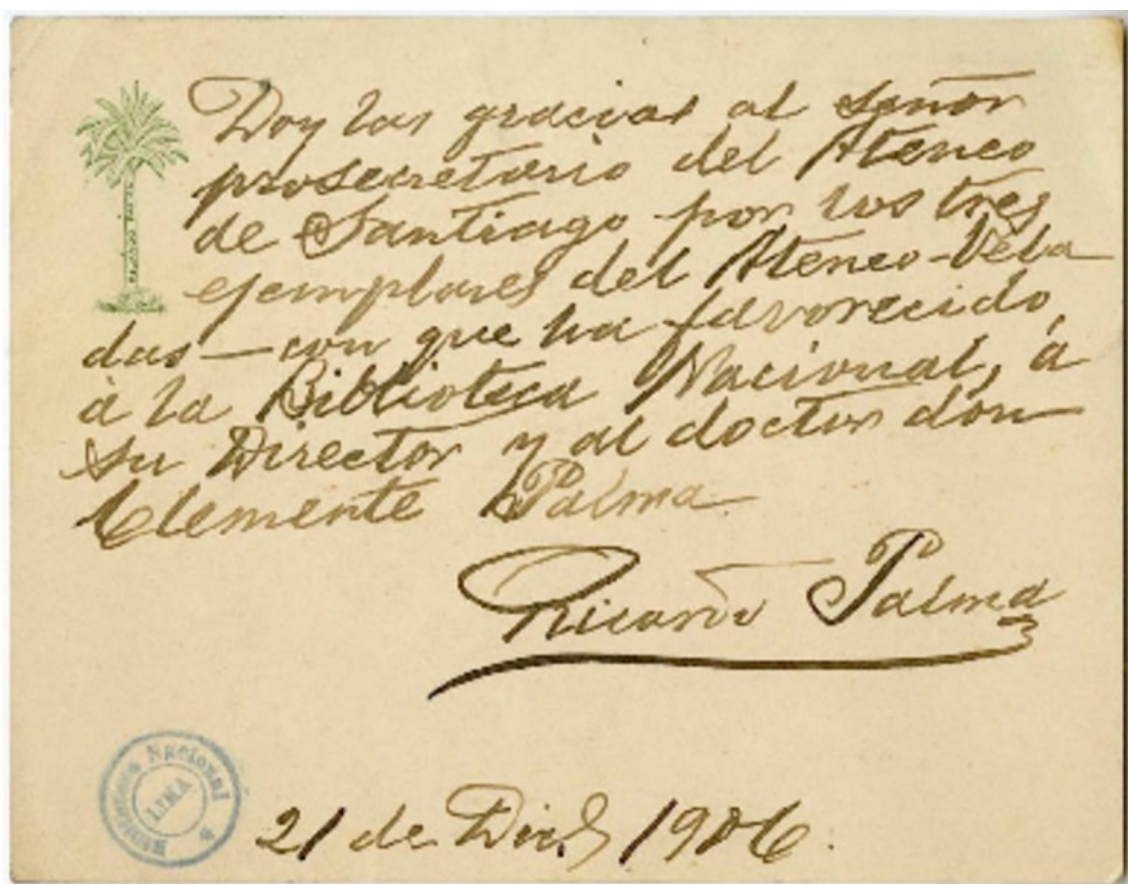 Doy las gracias al señor
prosecretario del Ateneo
de Santiago por los tres
ejemplares del Ateneo-Vela
das—con que ha favorecido,
à la Biblioteca Nacional, à
su Director y al doctor don
Clemente Palma.
Ricardo Palma
Biblioteca Nacional
LIMA
21 de Dic. 1906.